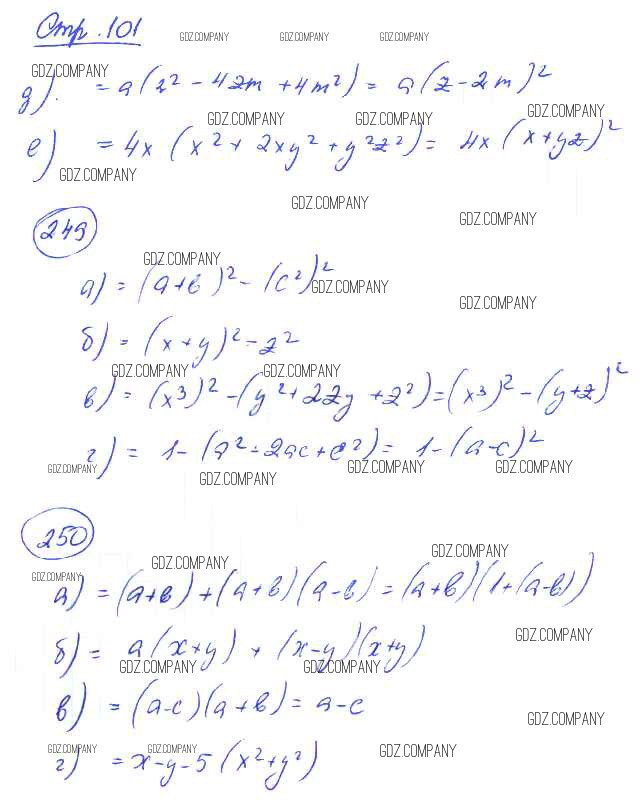 Стр. 101
GDZ.COMPANY GDZ.COMPANY GDZ.COMPANY
GDZ.COMPANY
д). = a(z² - 4zm + 4m²) = a(z - 2m)²
GDZ.COMPANY GDZ.COMPANY GDZ.COMPANY
е) = 4x (x² + 2xy² + y²z²) = 4x (x + yz)²
GDZ.COMPANY
GDZ.COMPANY GDZ.COMPANY
249
GDZ.COMPANY
а) = (a+b)² - (c²)²
GDZ.COMPANY GDZ.COMPANY
б) = (x+y)² - z²
GDZ.COMPANY GDZ.COMPANY
в) = (x³)² - (y² + 2zy + z²) = (x³)² - (y+z)²
г) = 1 - (a² - 2ac + c²) = 1 - (a-c)²
GDZ.COMPANY GDZ.COMPANY GDZ.COMPANY GDZ.COMPANY
250
GDZ.COMPANY GDZ.COMPANY
GDZ.COMPANY
а) = (a+b) + (a+b)(a-b) = (a+b)(1+(a-b))
GDZ.COMPANY
б) = a(x+y) + (x-y)(x+y)
GDZ.COMPANY GDZ.COMPANY
в) = (a-c)(a+b) = a-c
GDZ.COMPANY
GDZ.COMPANY GDZ.COMPANY GDZ.COMPANY
г) = x-y-5(x²+y²)